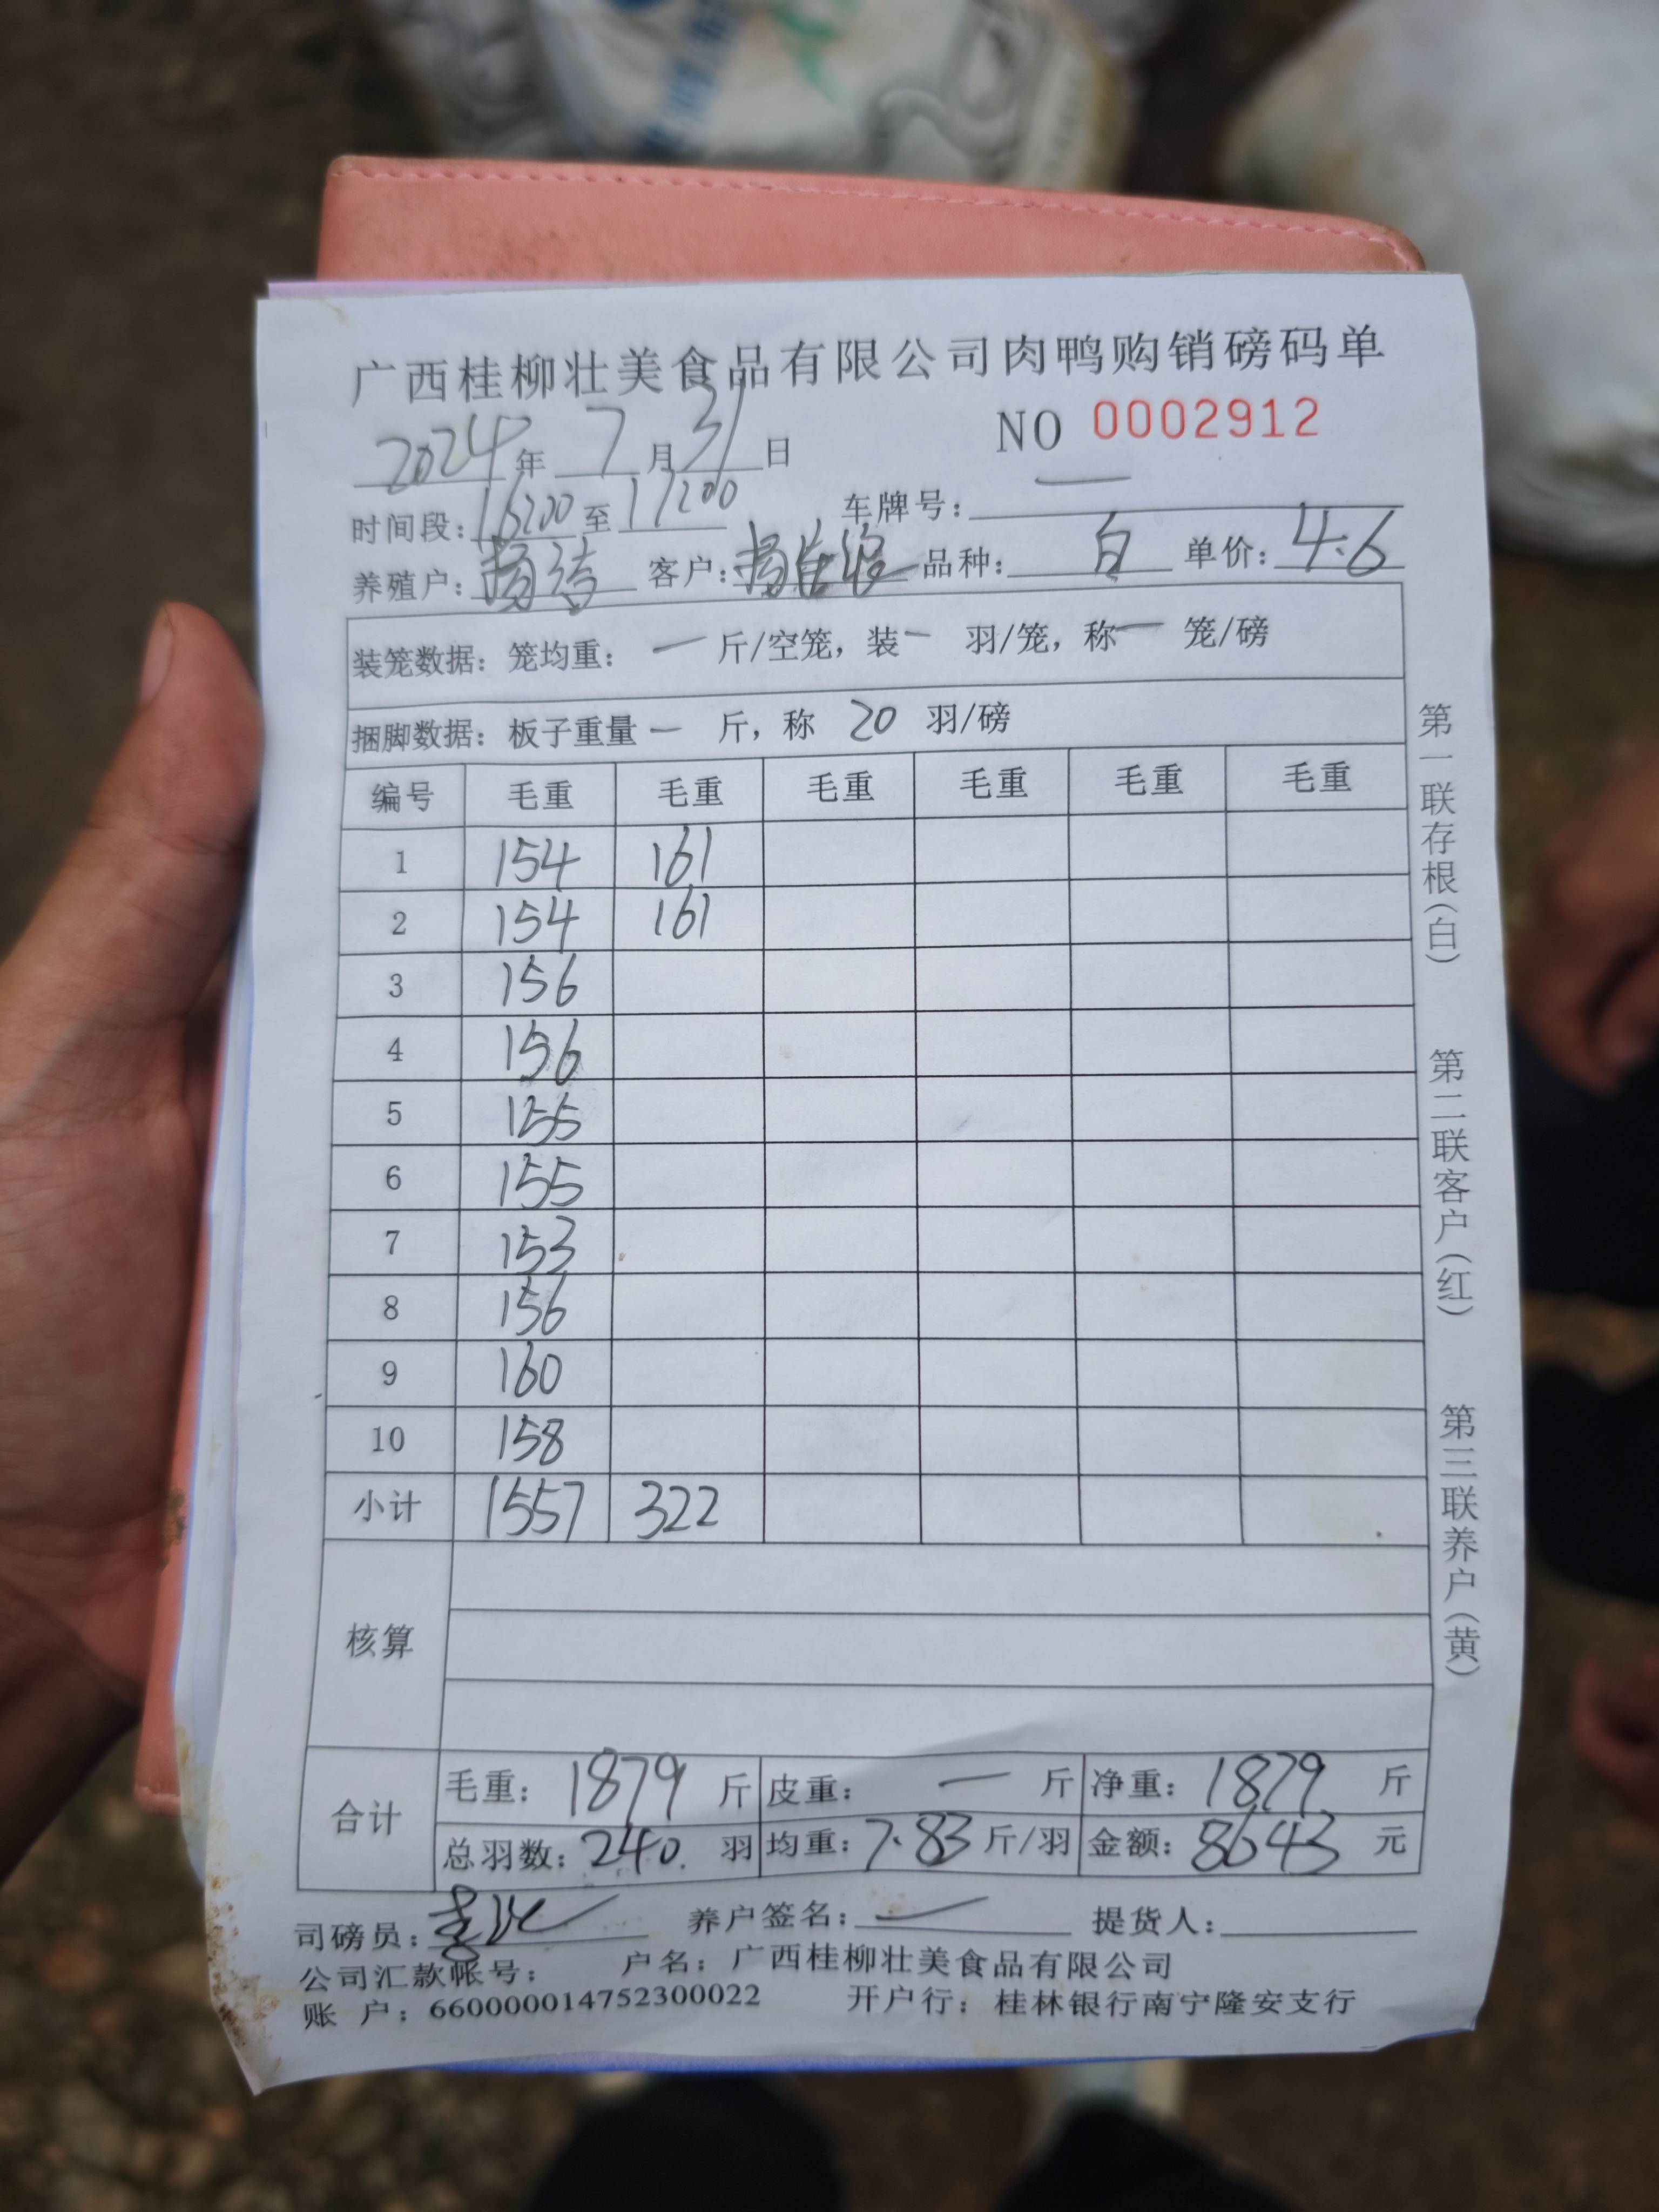 广西桂柳壮美食品有限公司肉鸭购销磅码单
2024年 7 月 31 日 NO 0002912
时间段：16:00 至 17:00 车牌号：—
养殖户： 客户： 品种：白 单价：4.6
装笼数据：笼均重：— 斤/空笼，装— 羽/笼，称— 笼/磅
捆脚数据：板子重量 — 斤，称 20 羽/磅
编号 毛重 毛重 毛重 毛重 毛重 毛重
1 154 161
2 154 161
3 156
4 156
5 155
6 155
7 153
8 156
9 160
10 158
小计 1557 322
核算
合计 毛重：1879 斤 皮重：— 斤 净重：1879 斤
总羽数：240. 羽 均重：7.83 斤/羽 金额：8643 元
司磅员： 养户签名：— 提货人：
公司汇款帐号： 户名：广西桂柳壮美食品有限公司
账 户：660000014752300022 开户行：桂林银行南宁隆安支行
第一联存根（白）
第二联客户（红）
第三联养户（黄）